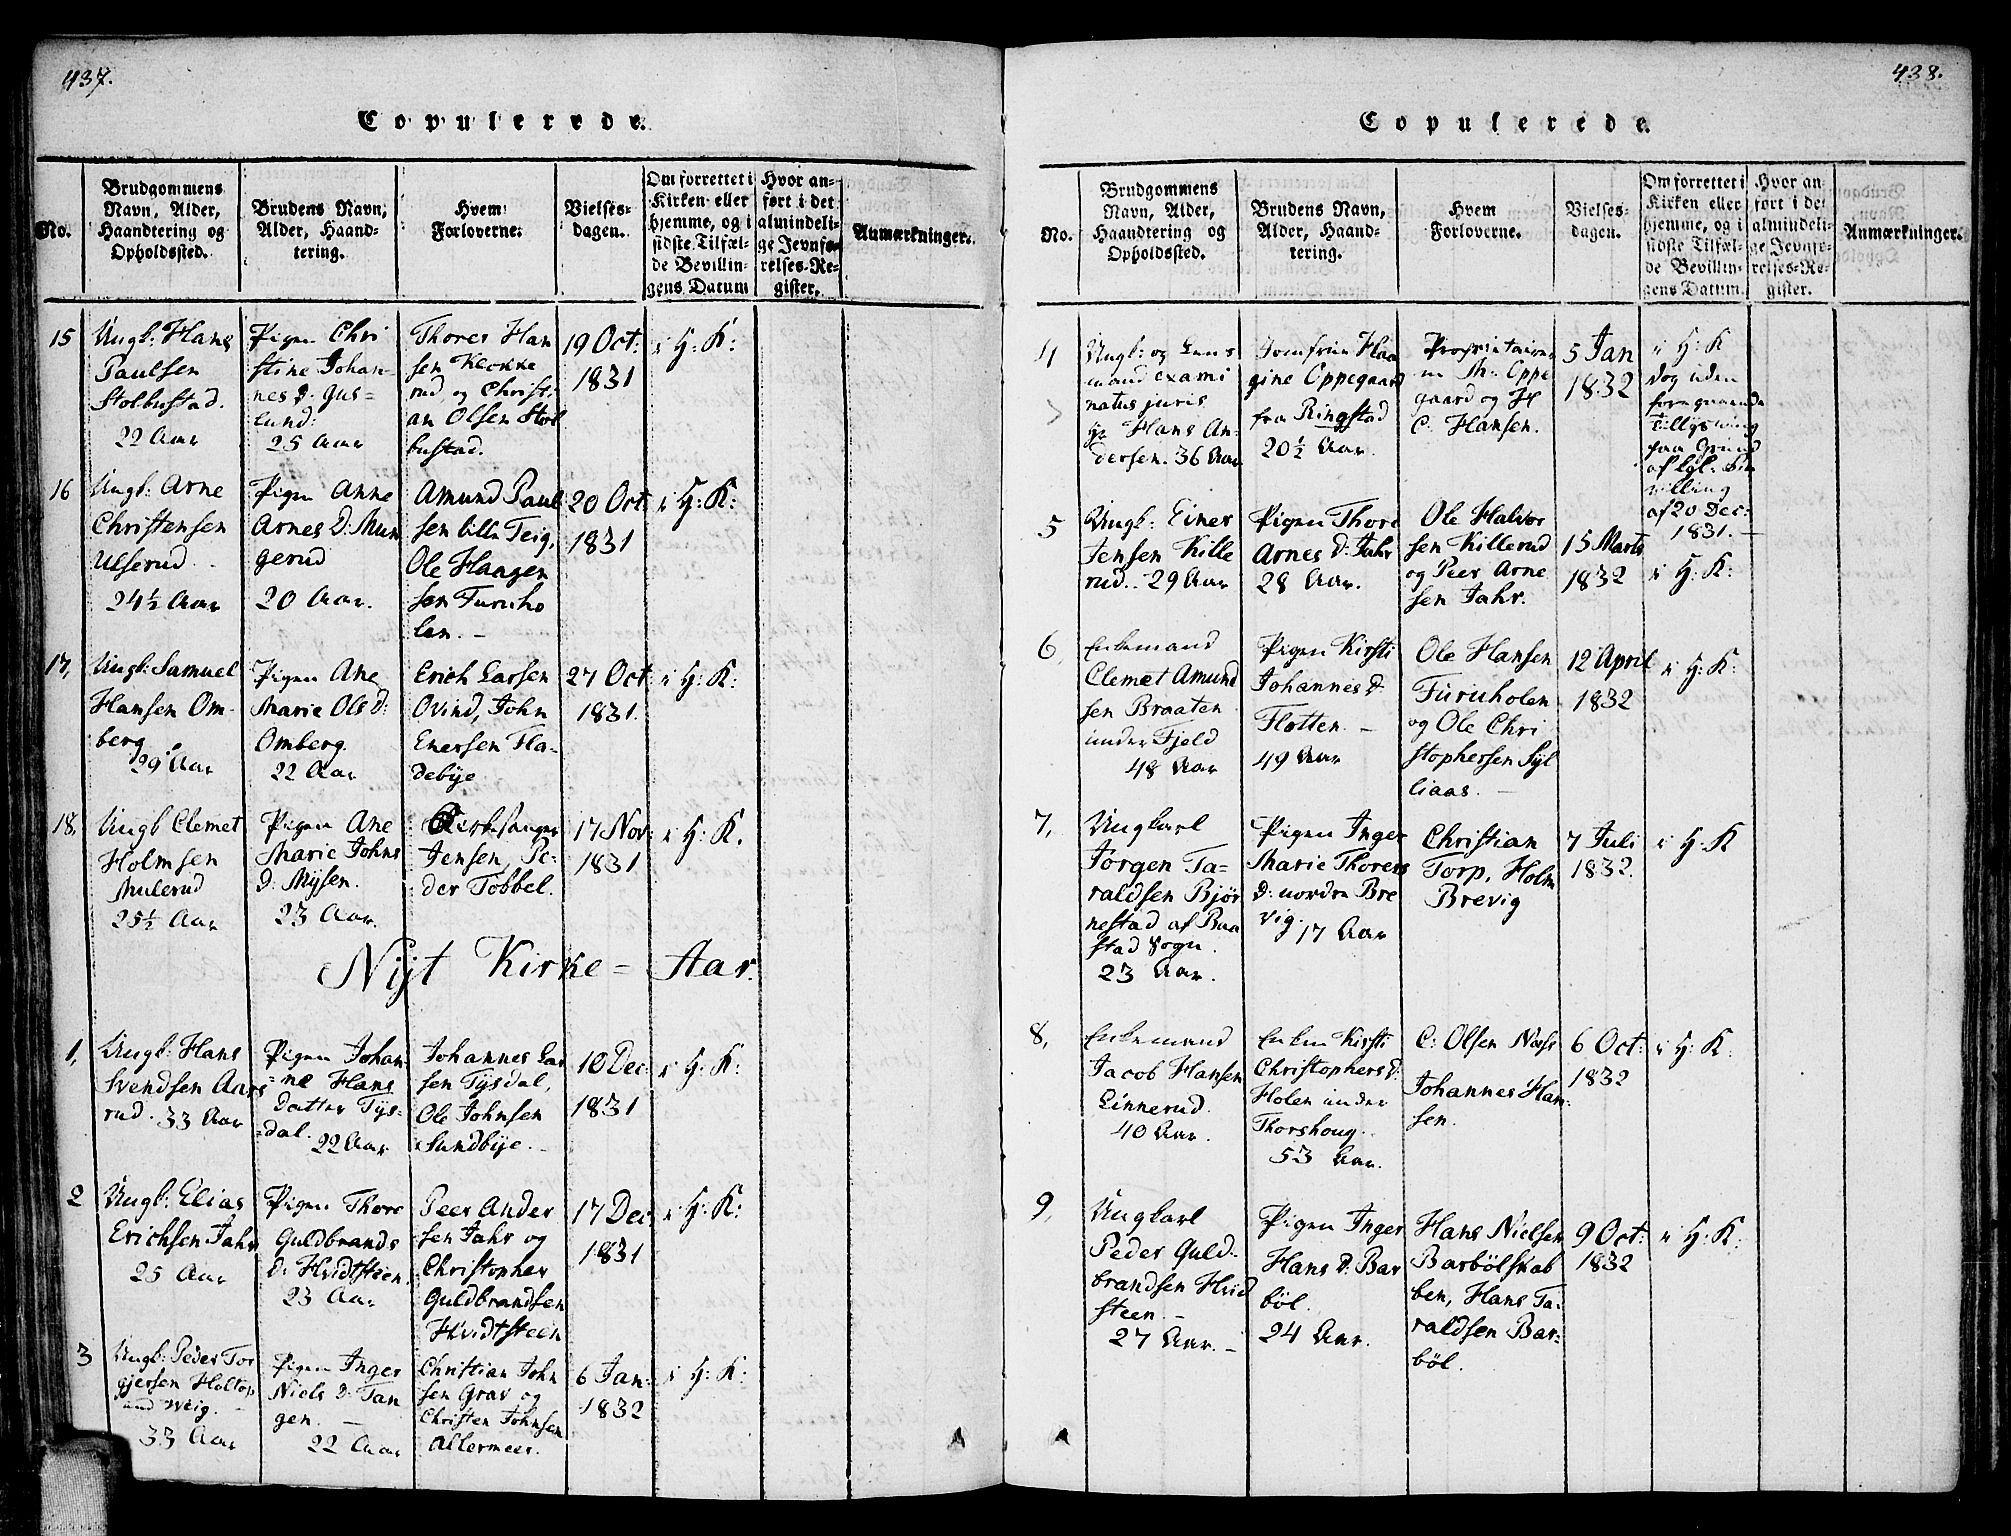 437.
Copulerede.
No.
Brudgommens
Navn, Alder,
Haandtering og
Opholdssted.
Brudens Navn,
Alder, Haand-
tering.
Hvem
Forloverne.
Vielses-
dagen.
Om forrettet i
Kirken eller
hjemme, og i
sidste Tilfæl-
de Bevillin-
gens Datum
Hvor an-
ført i det
almindeli-
ge Jevnfø-
relses-Re-
gister.
Anmærkninger.
15
Ungk: Hans
Paulsen
Stolbustad.
22 Aar
Pigen Chri
stine Johan-
nes D: Gus-
lund:
25 Aar
Thores Han
sen Kłokke
rud og Christi
an Olsen Stol
bustad.
19 Oct:
1831
i H: K:
16
Ungk: Arne
Christensen
Ulserud.
24½ Aar
Pigen Anne
Arnes D: Mun
gerud
20 Aar.
Amund Paul
sen lille Teig,
Ole Haagen
sen Furuho
len. –
20 Oct
1831
i H: K:
17,
Ungk: Samuel
Hansen Om-
berg
29 Aar
Pigen Ane
Marie Ols D:
Omberg.
22 Aar
Erich Larsen
Ovind, John
Enersen Fla-
debye
27 Oct
1831.
i H: K:
18,
Ungk Clemet
Holmsen
Mulerud
25½ Aar
Pigen Ane
Marie Johns
D: Mysen.
23 Aar.
Kirkesanger
Jensen, Pe-
der Tobbel.
17 Nov:
1831
i H: K.
Nyt Kirke-Aar.
1,
Ungk: Hans
Svendsen Aars
rud. 33 Aar
Pigen Johan
=ne Hans
Datter Tys-
=dal.
22 Aar
Johannes Lar
sen Tysdal,
Ole Johnsen
Sundbye. –
10 Dec:
1831
i H: K:
2
Ungk: Elias
Erichsen Jahr
25 Aar
Pigen Thore
Guldbrands
D: Hvidtsteen
23 Aar
Peer Ander
sen Jahr og
Christopher
Guldbrandsen
Hvidtsteen
17 Dec
1831
i H: K:
3
Ungk: Peder Tor
gjersen Holtop
und Weig. –
33 Aar
Pigen Inger
Niels D: Tan
gen. –
22 Aar
Christian John
sen Grav og
Christen Johnsen
Allermeer.
6 Jan:
1832
i H: K:
438.
Copulerede.
No.
Brudgommens
Navn, Alder,
Haandtering og
Opholdssted.
Brudens Navn,
Alder, Haand-
tering.
Hvem
Forloverne.
Vielses-
dagen.
Om forrettet i
Kirken eller
hjemme, og i
sidste Tilfæl-
de Bevillin-
gens Datum.
Hvor an
ført i det
almindeli-
ge Jevnfø-
relses-Re-
gister.
Anmærkninger.
4
Ungk: og Lens
mand exami
natus juris
Hr Hans An-
dersen. 36 Aar
Jomfrue Haa
gine Oppegaard
fra Ringstad
20½ Aar.
Proprietairer
ne Th: Oppe
gaard og H
C. Hansen.
5 Jan
1832
i H: K
dog uden
foregaaende
Tillysning
paa Grund
af kgl: Be
villing
af 20 Dec:
1831. –
5
Ungk: Einer
Jensen Kille
rud. 29 Aar
Pigen Thore
Arnes D: Jahr
28 Aar.
Ole Halvor
sen Killerud
og Peer Arne
sen Jahr.
15 Marts
1832
i H: K:
6,
Enkemand
Clemet Amund
sen Braaten
under Fjeld
48 Aar
Pigen Kirsti
Johannes D:
Fløtten. –
49 Aar
Ole Hansen
Furuholen
og Ole Chri
stophersen Syl
liaas. –
12 April
1832
i H: K:
7,
Ungkarl
Jørgen Ta=
raldsen Bjør
nestad af Baa
stad Sogn.
23 Aar.
Pigen Inger
Marie Thores
D: nordre Bre
vig.
17 Aar
Christian
Torp, Holm
Brevig
7 Juli
1832.
i H: K
8,
Enkemand
Jacob Hansen
Linnerud.
40 Aar.
Enken Kirsti
Christophers D:
Holen under
Thorshoug.
53 Aar.
C: Olsen Næss
Johannes Han-
sen.
6 Oct:
1832
i H: K:
9,
Ungkarl
Peder Guld-
brandsen Hvid
steen. –
27 Aar. –
Pigen Inger
Hans D: Bar
bøl.
24 Aar.
Hans Nielsen
Barbølskab
ben, Hans Ta-
raldsen Bar-
bøl.
9 Oct:
1832
i H: K: